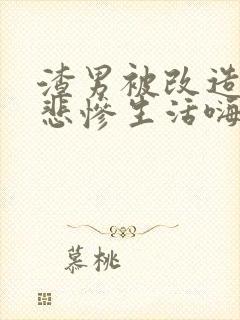 渣男被改造
悲惨生活嗨
慕桃